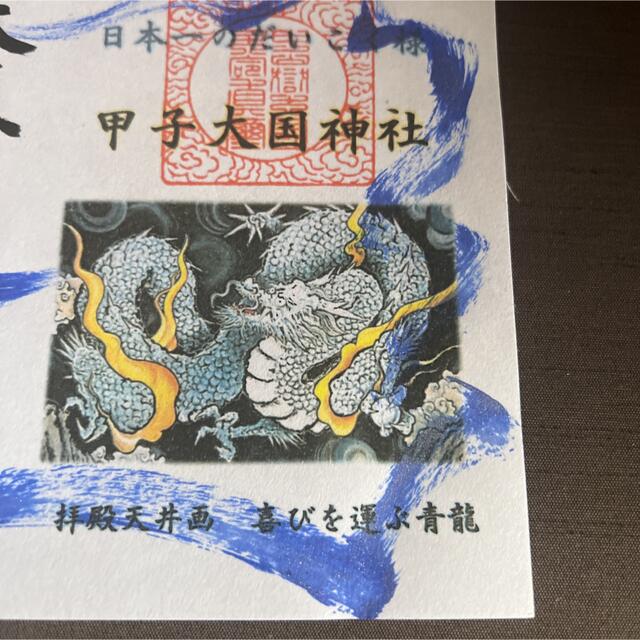 日本一のだいこく様
甲子大国神社
拝殿天井画　喜びを運ぶ青龍